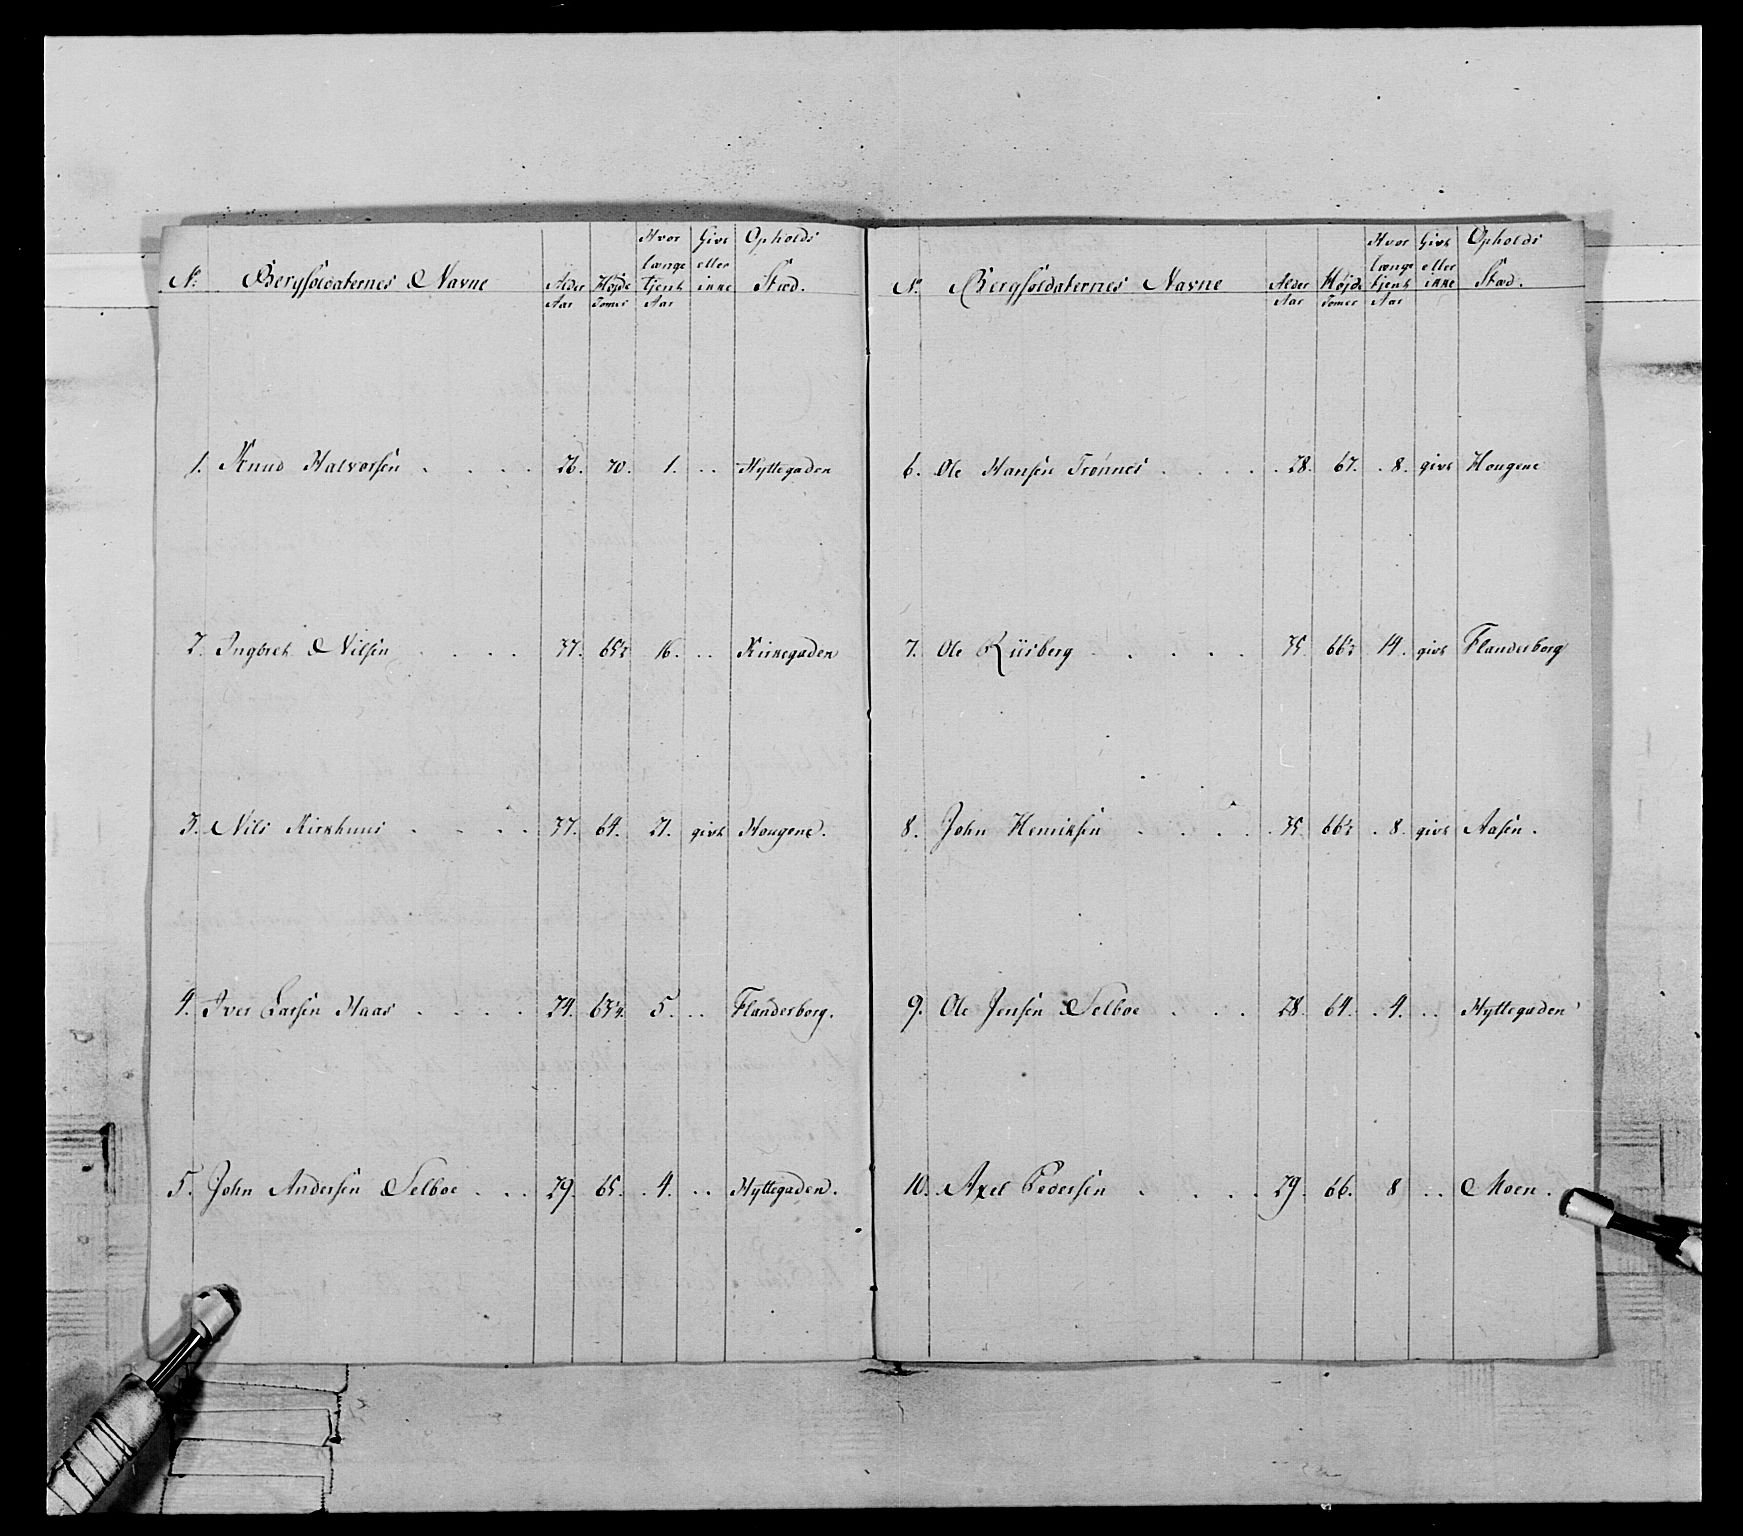 Hvor Givt Opholds
længe eller
No. Bergsoldaternes Navne Alder Højde tjent ikke Stæd.
Aar Tomer Aar
1. Knud Halvorsen . . . . 26. 70. 1. . . Hyttegaden
2. Ingbret Nilsen . . . . 37. 65½ 16. . . Kirkegaden
3. Nils Kirkhuus . . . . 37. 64. 21. givt Hougene.
4. Iver Larsen Haas . . . . 24. 5. . . Flanderborg.
5. John Andersen Selboe . . . 29. 65. . 4. . . Hyttegaden.
Hvor Givt Opholds
længe eller
No. Bergsoldaternes Navne Alder Højde tjent ikke Stæd.
Aar Tomer Aar
6. Ole Hansen Trønnes . . . . 28. 67. . 8. givt Hougene
7. Ole Riisberg . . . . . 35. 66½ 14. givt Flanderborg
8. John Henriksen . . . . . 35. 66½ . 8. givt Aasen.
9. Ole Jensen Selboe . . . 28. 64. . 4. . . Hyttegaden
10. Axel Pedersen . . . . 29. 66. 8 . . Moen.